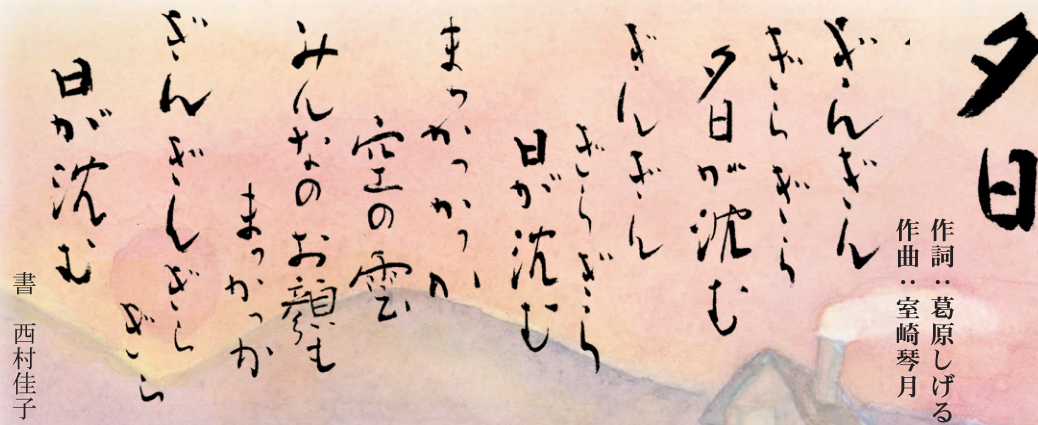 夕日
作詞：葛原しげる
作曲：室崎琴月
ぎんぎん
ぎらぎら
夕日が沈む
ぎんぎん
ぎらぎら
日が沈む
まっかっかっか
空の雲
みんなのお顔も
まっかっか
ぎんぎんぎら
ぎら
日が沈む
書　西村佳子